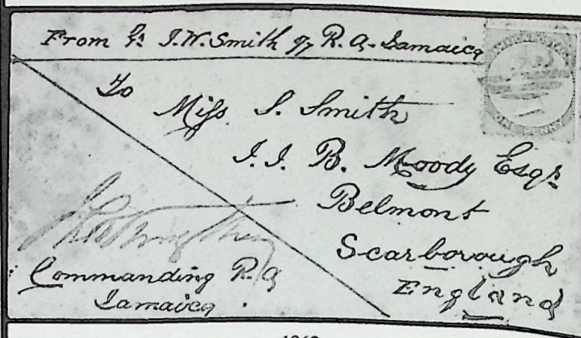 From Gr J. W. Smith of R. A. Jamaica
To
Miss S. Smith
J. J. B. Moody Esqr
Belmont
Scarborough
England
Commanding R. A
Jamaica